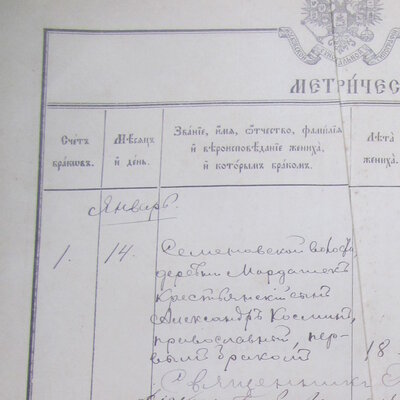 МЕТРИ́ЧЕС
Счетъ браковъ.
Мѣсяцъ и день.
Званіе, имя, отчество, фамилія и вѣроисповѣданіе жениха, и которымъ бракомъ.
Лѣта жениха.
Январь.
1.
14.
Семеновской волости,
деревни Мардашекъ
Крестьянскій сынъ
Александръ Косминъ,
православный, пер-
вымъ бракомъ
18
Священникъ